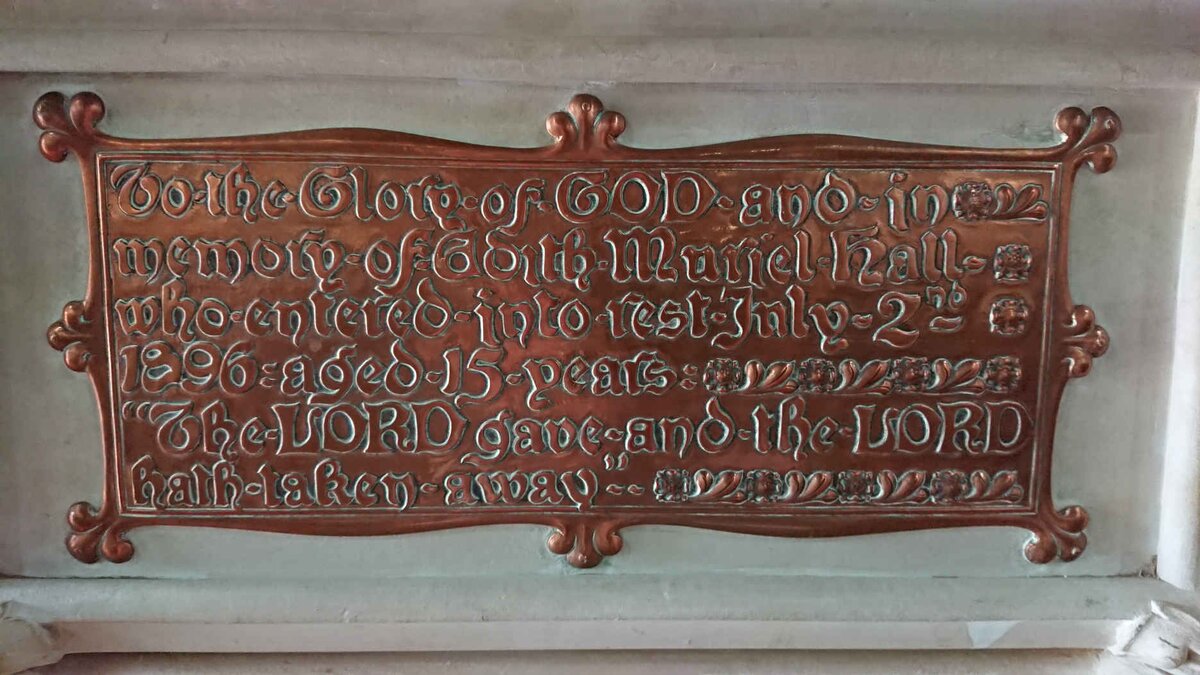 To·the·Glory·of·GOD-and-in
memory-of-Edith·Muriel·Hall-
who-entered-into-rest·July-2nd
1896:aged-15-years:
"The-LORD gave-and-the-LORD
hath-taken-away"--